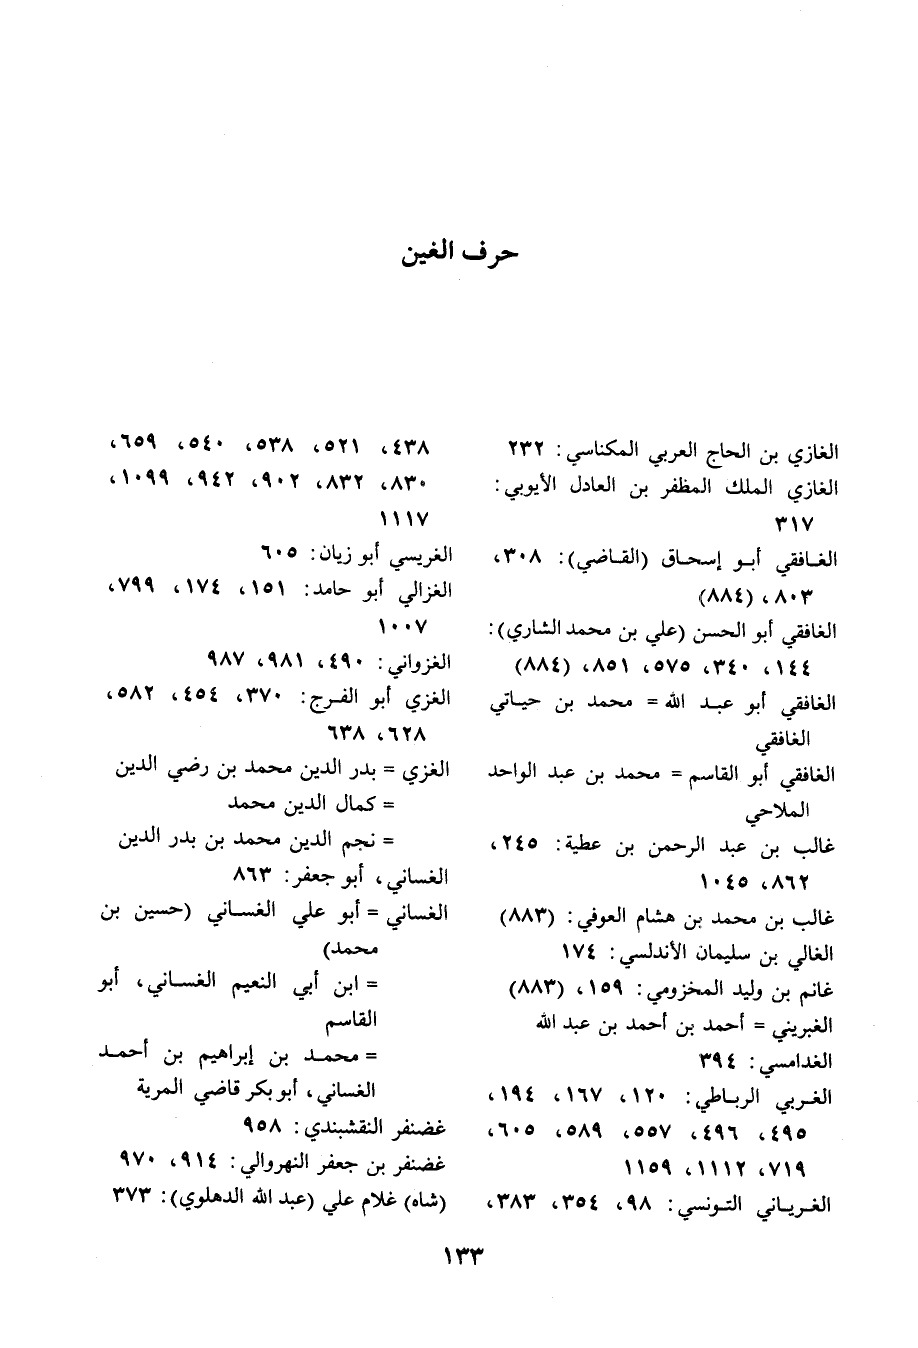 حرف الغين
الغازي بن الحاج العربي المكناسي: ٢٣٢
الغازي الملك المظفر بن العادل الأيوبي:
٣١٧
الغافقي أبو إسحاق (القاضي): ٣٠٨،
٨٠٣، (٨٨٤)
الغافقي أبو الحسن (علي بن محمد الشاري):
١٤٤، ٣٤٠، ٥٧٥، ٨٥١، (٨٨٤)
الغافقي أبو عبد الله = محمد بن حياتي
الغافقي
الغافقي أبو القاسم = محمد بن عبد الواحد
الملاحي
غالب بن عبد الرحمن بن عطية: ٢٤٥،
٨٦٢، ١٠٤٥
غالب بن محمد بن هشام العوفي: (٨٨٣)
الغالي بن سليمان الأندلسي: ١٧٤
غانم بن وليد المخزومي: ١٥٩، (٨٨٣)
الغبريني = أحمد بن أحمد بن عبد الله
الغدامسي: ٣٩٤
الغربي الرباطي: ١٢٠، ١٦٧، ١٩٤،
٤٩٥، ٤٩٦، ٥٥٧، ٥٨٩، ٦٠٥،
٧١٩، ١١١٢، ١١٥٩
الغرياني التونسي: ٩٨، ٣٥٤، ٣٨٣،
٤٣٨، ٥٢١، ٥٣٨، ٥٤٠، ٦٥٩،
٨٣٠، ٨٣٢، ٩٠٢، ٩٤٢، ١٠٩٩،
١١١٧
الغريسي أبو زيان: ٦٠٥
الغزالي أبو حامد: ١٥١، ١٧٤، ٧٩٩،
١٠٠٧
الغزواني: ٤٩٠، ٩٨١، ٩٨٧
الغزي أبو الفرج: ٣٧٠، ٤٥٤، ٥٨٢،
٦٢٨، ٦٣٨
الغزي = بدر الدين محمد بن رضي الدين
= كمال الدين محمد
= نجم الدين محمد بن بدر الدين
الغساني، أبو جعفر: ٨٦٣
الغساني = أبو علي الغساني (حسين بن
محمد)
= ابن أبي النعيم الغساني، أبو
القاسم
= محمد بن إبراهيم بن أحمد
الغساني، أبو بكر قاضي المرية
غضنفر النقشبندي: ٩٥٨
غضنفر بن جعفر النهروالي: ٩١٤، ٩٧٠
(شاه) غلام علي (عبد الله الدهلوي): ٣٧٣
١٣٣